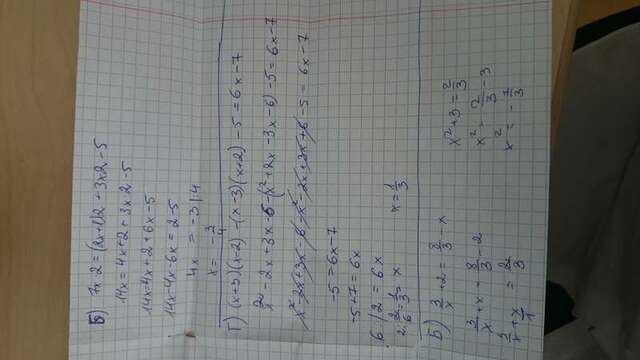 Б) 7x 2 = (2x+1)2 + 3x2 - 5
14x = 4x + 2 + 3x 2 - 5
14x-4x + 2 + 6x - 5
14x - 4x - 6x = 2 - 5
4x = -3 | 4
x = -3/4
Г) (x+3)(x-2) - (x-3)(x+2) - 5 = 6x - 7
x² - 2x + 3x - 6 - (x² + 2x - 3x - 6) - 5 = 6x - 7
x² - 2x + 3x - 6 - x² - 2x + 3x + 6 - 5 = 6x - 7
-5 = 6x - 7
-5 + 7 = 6x
6 | 2 = 6x
2/6 = 1/3 = x
x = 1/3
Б) 3/x + 2 = 8/3 - x
3/x + x = 8/3 - 2
3/x + x/1 = 2/3
x² + 3 = 2/3
x² = 2/3 - 3
x² = - 7/3